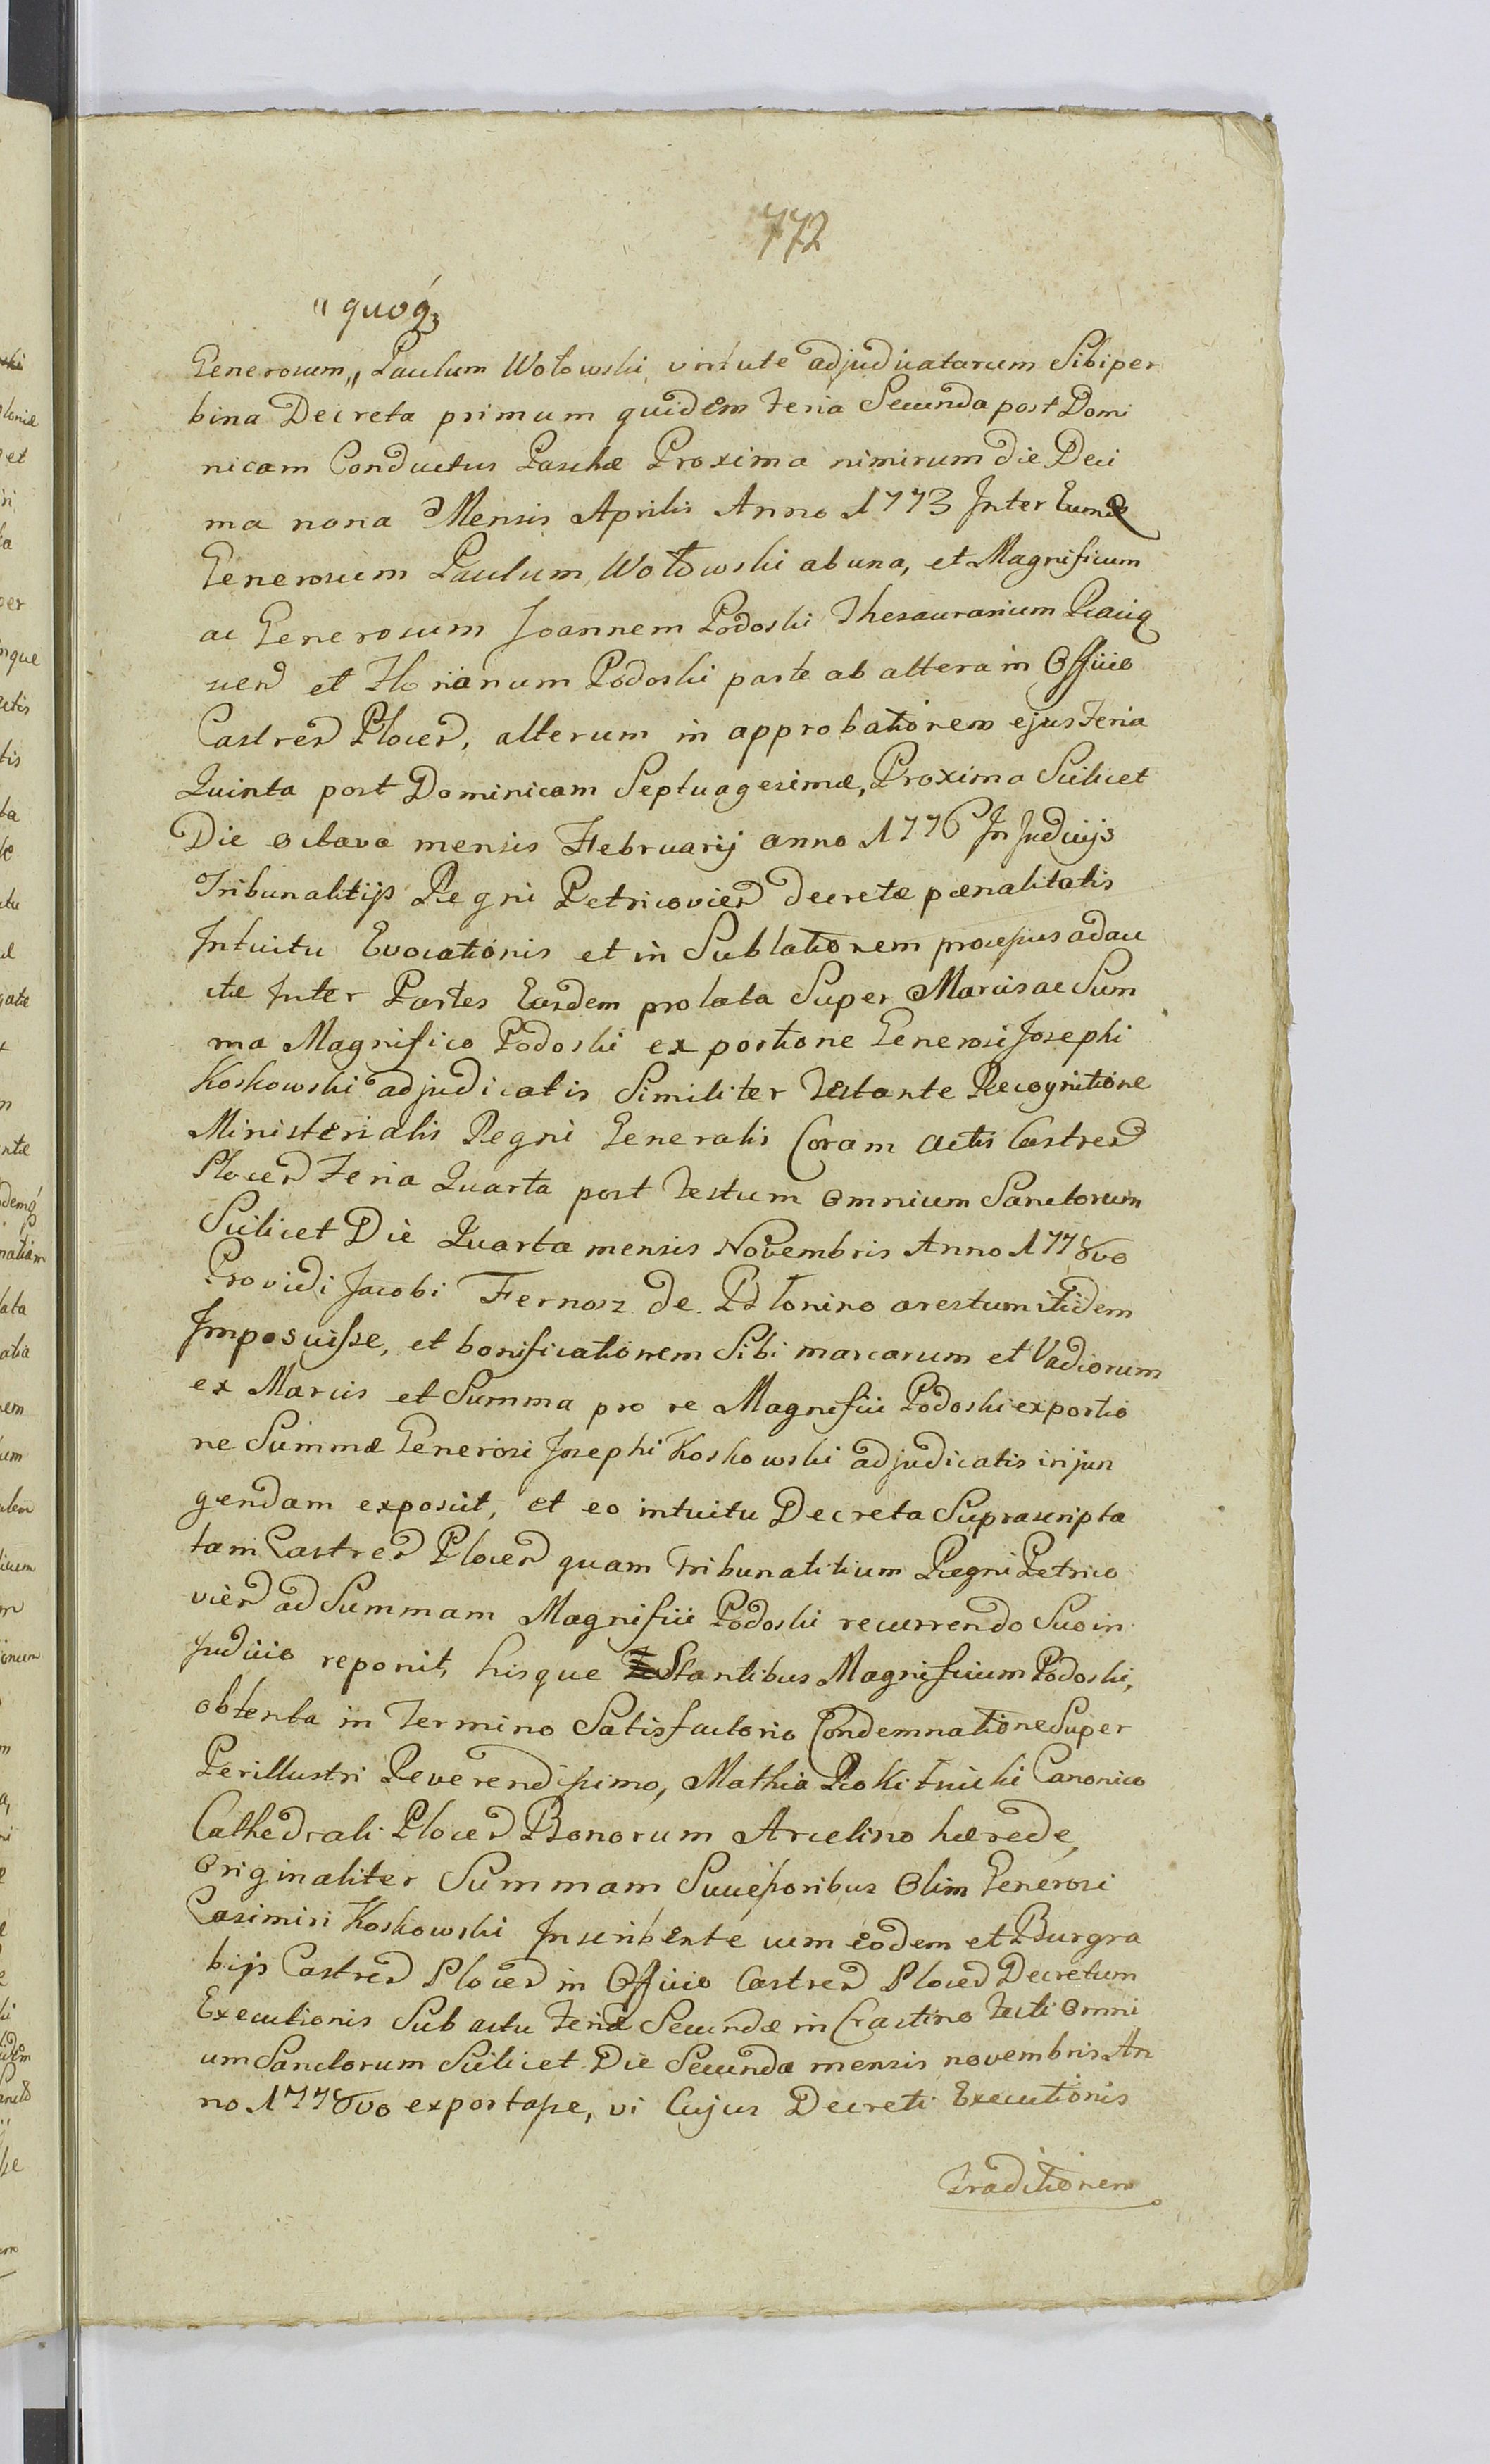 772
" quoq3
Generosum " Paulum Wołowski virtute adjudicatarum Sibi per
bina Decreta primum quidem Feria Secunda post Domi
nicam Conductus Paschæ Proxima nimirum die Deci
ma nona Mensis Aprilis Anno 1773 Inter Eumd
Generosum Paulum Wołowski ab una, et Magnificum
ac Generosum Joannem Podoski Thesaurarium Raciąż
scen et Florianum Podoski parte ab altera in Officio
Castren Plocen, alterum in approbationem ejus Feria
Quinta post Dominicam Septuagesimæ, Proxima Scilicet
Die octava mensis Februarij anno 1776 In Judicijs
Tribunalitijs Regni Petricovien decretæ pœnalitatis
Intuitu Evocationis et in Sublationem processus adau
ctæ Inter Partes Easdem prolata Super Marcis ac Sum
ma Magnifico Podoski ex portione Generosi Josephi
Koskowski adjudicatis Similiter Testante Recognitione
Ministerialis Regni Generalis Coram Actis Castren
Plocen Feria Quarta post Festum Omnium Sanctorum
Scilicet Die Quarta mensis Novembris Anno 1778vo
Providi Jacobi Fernosz de Płonino arestum itidem
Imposuisse, et bonificationem Sibi marcarum et Vadiorum
ex Marcis et Summa pro re Magnifici Podoski ex portio
ne Summæ Generosi Josephi Koskowski adjudicatis injun
gendam exposcit, et eo intuitu Decreta Suprascripta
tam Castren Plocen quam Tribunalitium Regni Petrico
vien ad Summam Magnifici Podoski recurrendo Suo in
Judicio reponit, hisque Stantibus Magnificum Podoski,
obtenta in Termino Satisfactorio Condemnatione Super
Perillustri Reverendissimo, Mathia Rokitnicki Canonico
Cathedrali Plocen Bonorum Arcelino hærede,
Originaliter Summam Successoribus Olim Generosi
Casimiri Koskowski Inscribente cum eodem et Burgra
bijs Castren Plocen in Officio Castren Plocen Decretum
Executionis Sub actu Feriæ Secundæ in Crastino Festi Omni
um Sanctorum Scilicet Die Secunda mensis novembris An
no 1778vo exportasse, vi Cujus Decreti Executionis
Traditionem